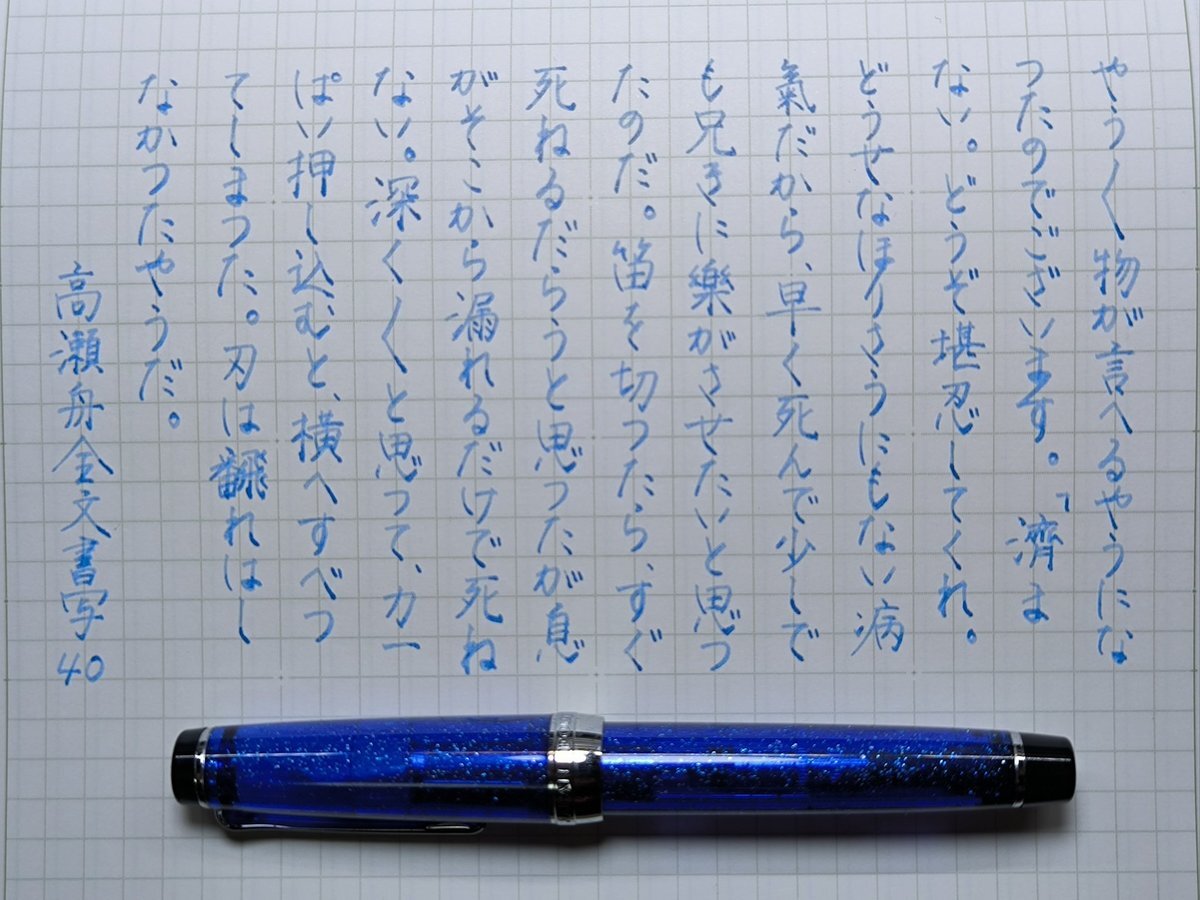 やう〱物が言へるやうにな
つたのでございます。『濟ま
ない。どうぞ堪忍してくれ。
どうせなほりさうにもない病
氣だから、早く死んで少しで
も兄きに樂がさせたいと思つ
たのだ。笛を切つたら、すぐ
死ねるだらうと思つたが息
がそこから漏れるだけで死ね
ない。深く〱と思つて、力一
ぱい押し込むと、横へすべつ
てしまつた。刃は飜れはし
なかつたやうだ。
高瀬舟全文書写40